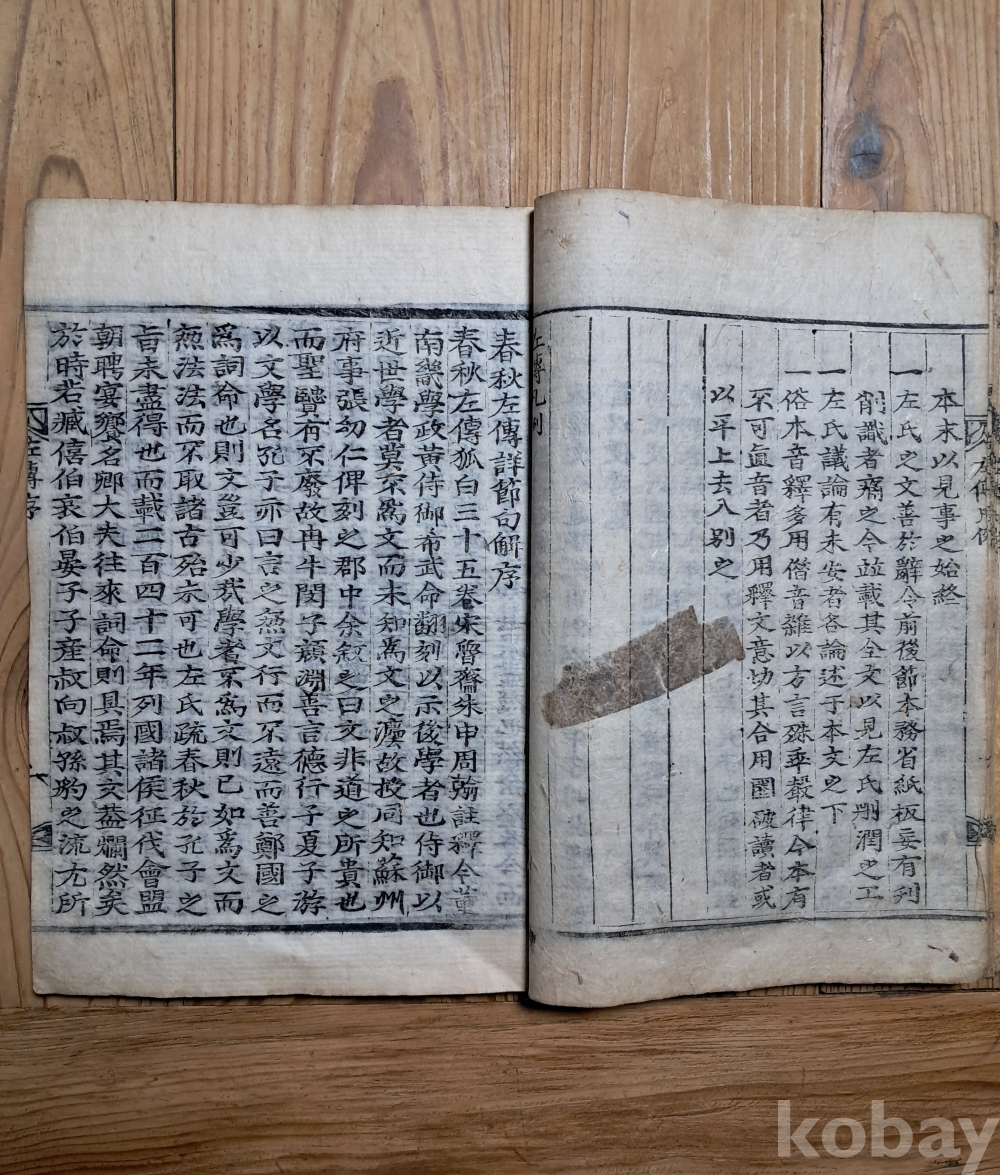 本末以見事之始終
一左氏之文善於辭令前後節本務省紙板妄有刋
削識者病之今並載其全文以見左氏刪潤之工
一左氏議論有未安者各論述于本文之下
一俗本音釋多用偕音雜以方言殊乖聲律今本有
不可直音者乃用釋文意切其合用圈破讀者或
以平上去入別之
左傳凡例
春秋左傳詳節句解序
春秋左傳狐白三十五卷宋魯齋朱申周翰註釋今董
南畿學政黃侍御希武命翻刻以示後學者也侍御以
近世學者莫不爲文而未知爲文之瀍故授同知蘇州
府事張幼仁俾刻之郡中余敘之曰文非道之所貴也
而聖賢有不廢故冉牛閔子顔淵善言德行子夏子游
以文學名孔子亦曰言之無文行而不遠而善鄭國之
爲詞命也則文豈可少哉學者不爲文則已如爲文而
無法法而不取諸古殆未可也左氏疏春秋於孔子之
旨未盡得也而載二百四十二年列國諸侯征伐會盟
朝聘宴饗名卿大夫往來詞命則具焉其文蓋爛然矣
於時若臧僖伯哀伯晏子子產叔向叔孫豹之流尤所
左傳序
kobay